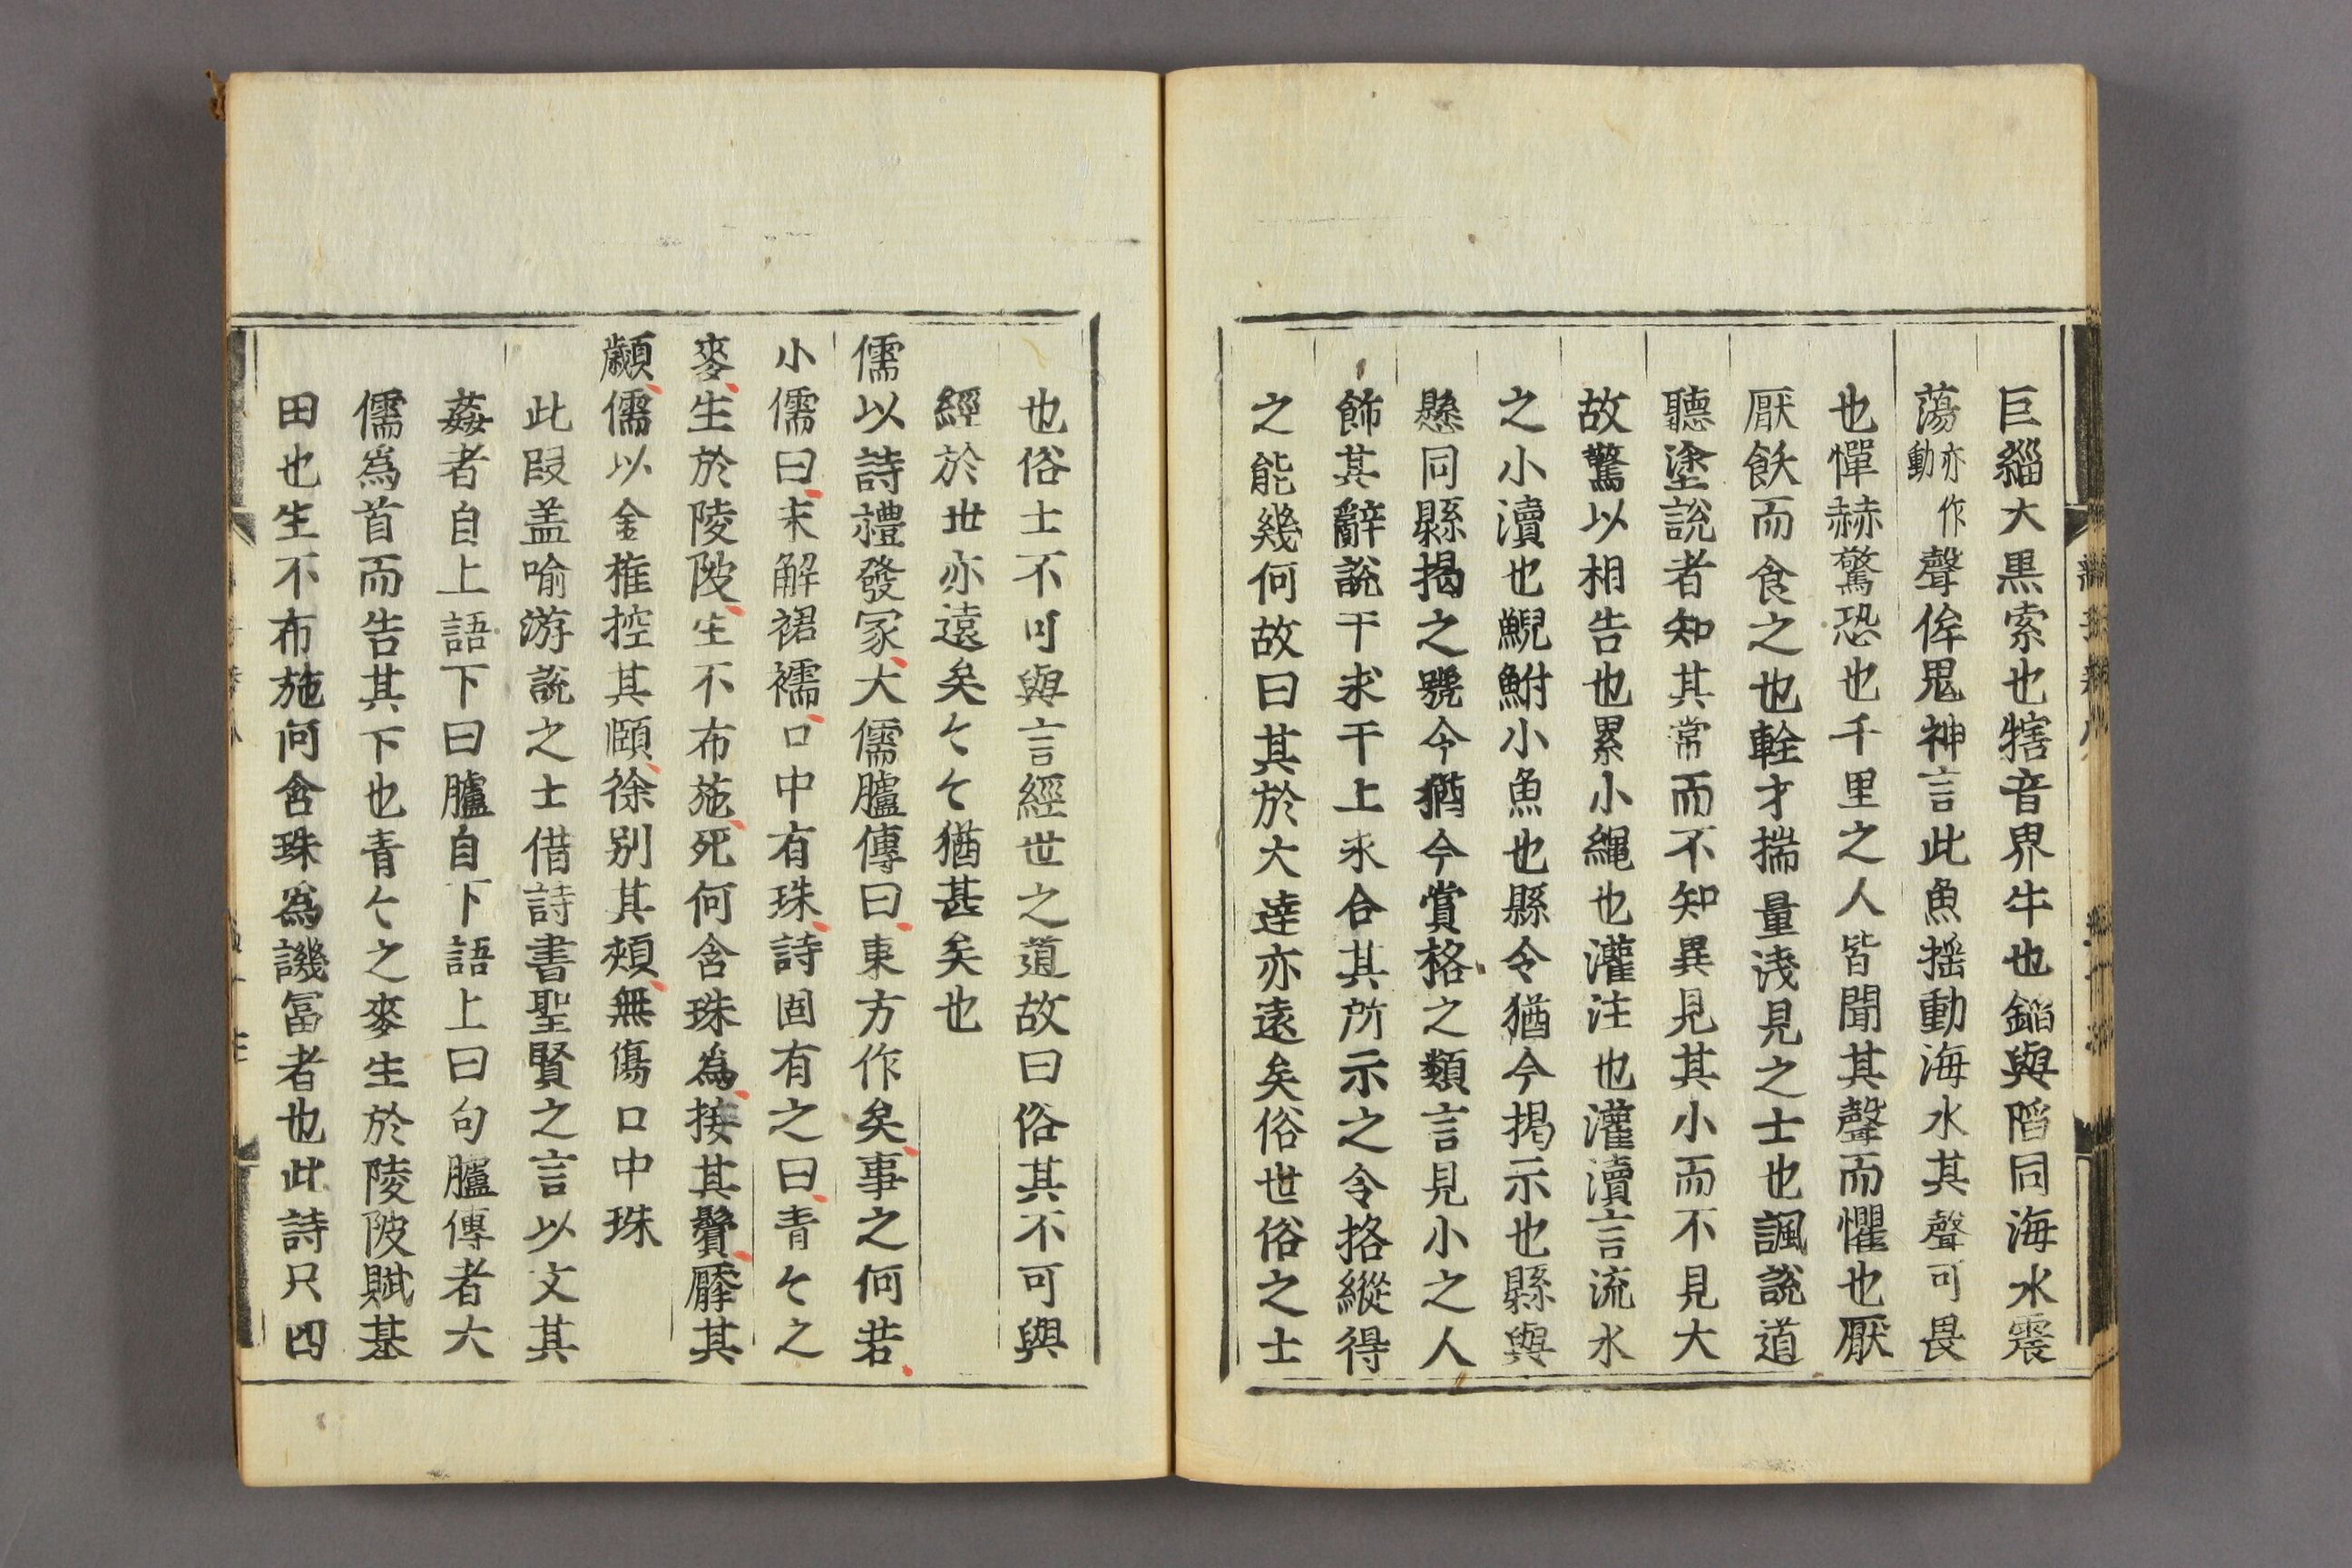 巨緇大黒索也犗音界牛也錎與陷同海水震
蕩亦作動聲侔鬼神言此魚揺動海水其聲可畏
也憚赫驚恐也千里之人皆聞其聲而懼也厭
厭飫而食之也輇才揣量淺見之士也諷說道
聽塗說者知其常而不知異見其小而不見大
故驚以相告也累小繩也灌注也灌瀆言流水
之小瀆也鯢鮒小魚也縣令猶今揭示也縣與
懸同縣揭之號令猶今賞格之類言見小之人
飾其辭說干求干上求合其所示之令挌縱得
之能幾何故曰其於大達亦遠矣俗世俗之士
也俗士不可與言經世之道故曰俗其不可與
經於世亦遠矣々々猶甚矣也
儒以詩禮發冢大儒臚傳曰東方作矣事之何若
小儒曰未解裙襦口中有珠詩固有之曰青々之
麥生於陵陂生不布施死何含珠為接其鬢擪其
顪儒以金椎控其頤徐別其頰無傷口中珠
此段盖喻游說之士借詩書聖賢之言以文其
姦者自上語下曰臚自下語上曰句臚傳者大
儒爲首而告其下也青々之麥生於陵陂賦墓
田也生不布施何含珠爲譏冨者也此詩只四